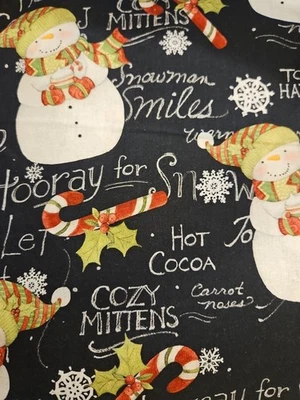 COZY
MITTENS
Snowman
Smiles
TO
HA
warm
Hooray for Snow
Let
HOT
COCOA
To
COZY
MITTENS
Carrot
noses
ay for